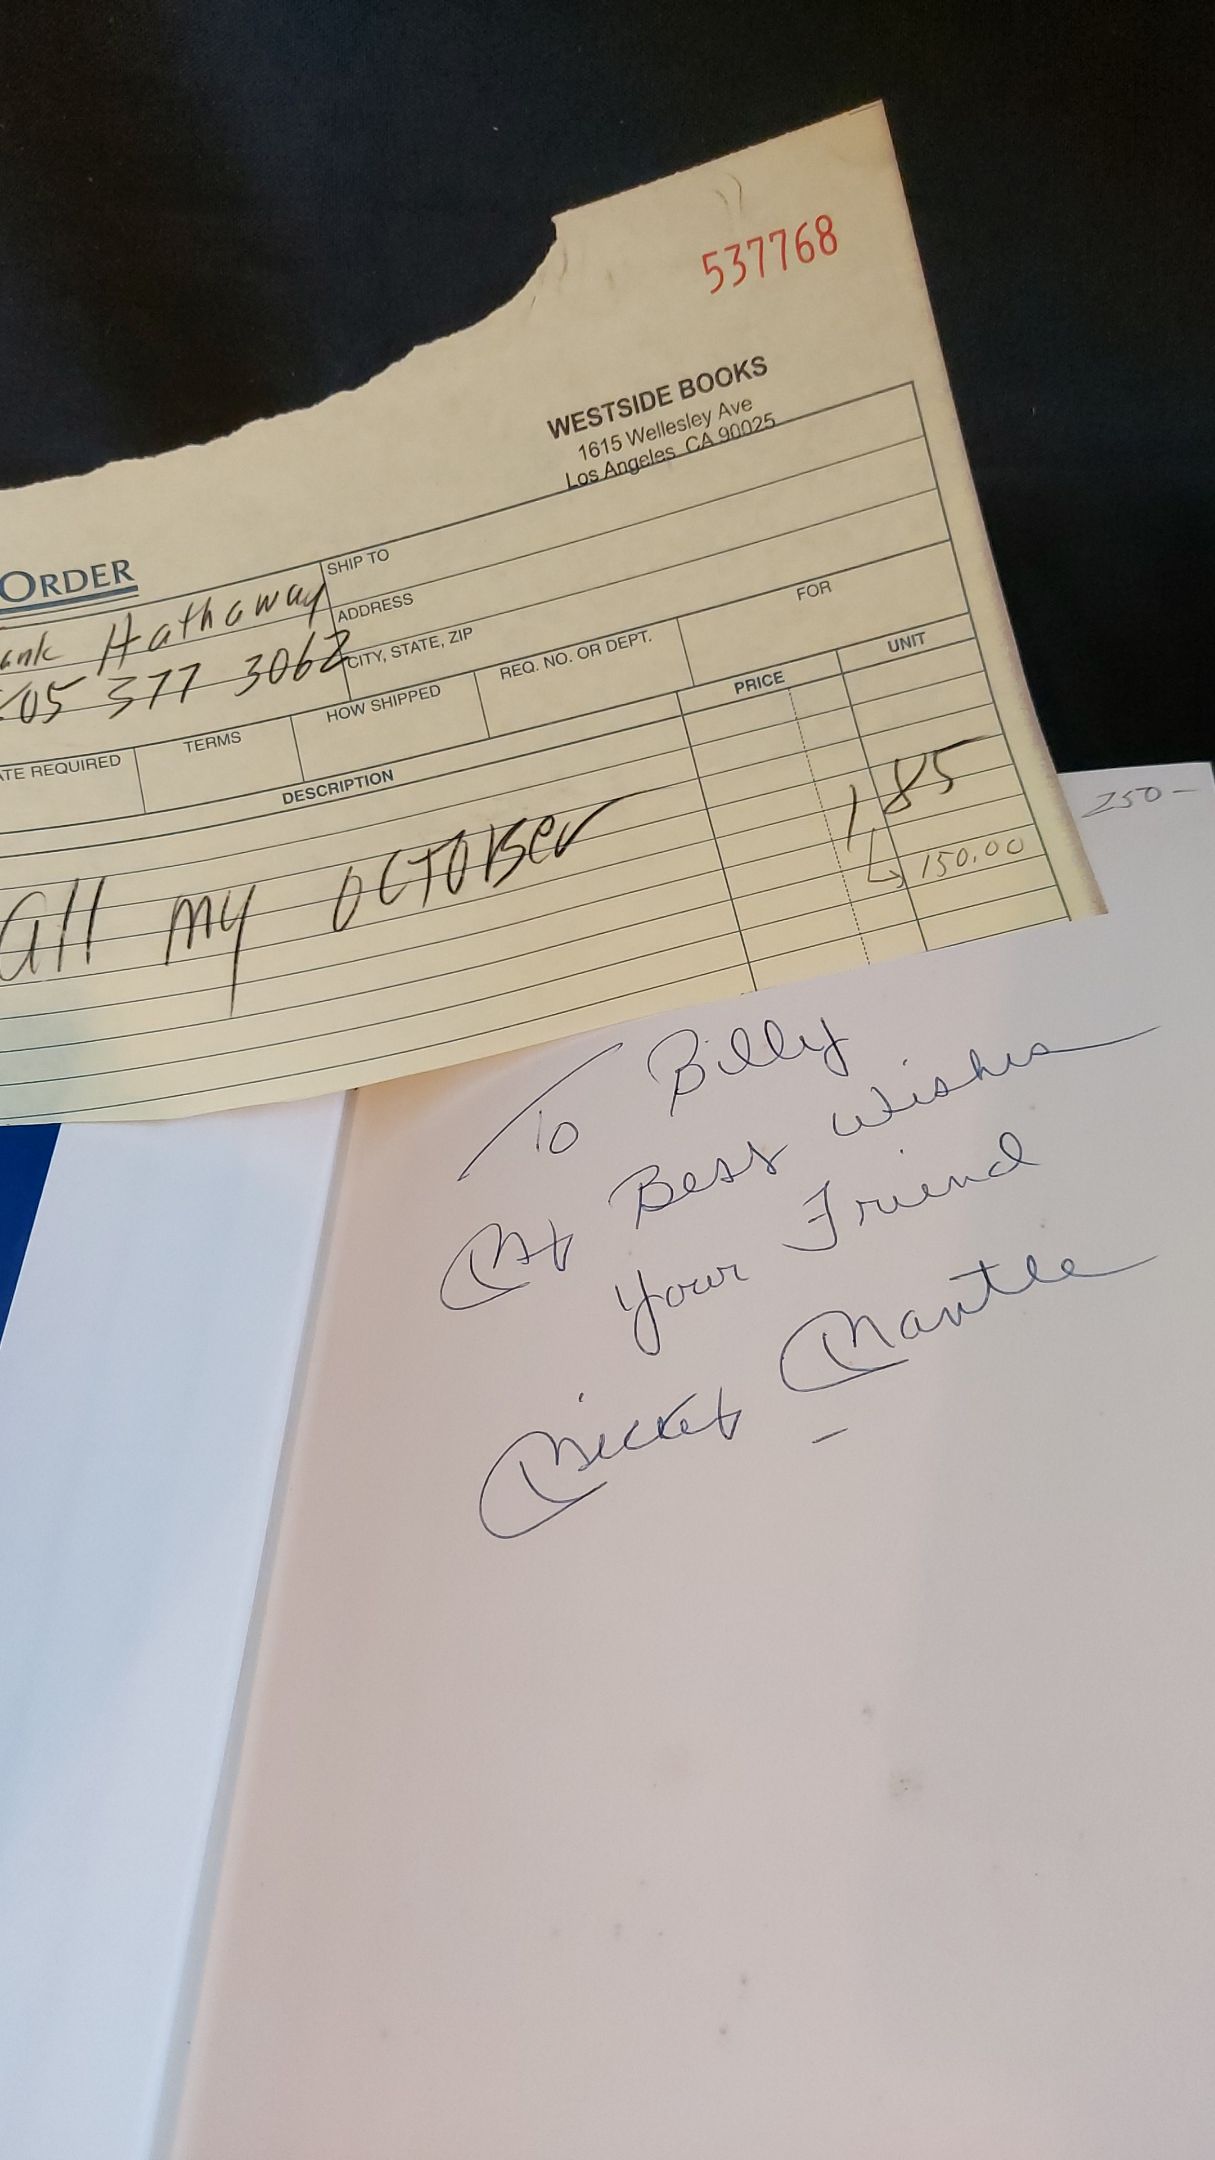 537768
WESTSIDE BOOKS
1615 Wellesley Ave
Los Angeles, CA 90025
ORDER
ank Hathaway
05 377 3062
SHIP TO
ADDRESS
CITY, STATE, ZIP
ATE REQUIRED TERMS HOW SHIPPED REQ. NO. OR DEPT. FOR
DESCRIPTION PRICE UNIT
all my OCTOBer 185
150.00
250-
To Billy
My Best Wishes
Your Friend
Mickey Mantle